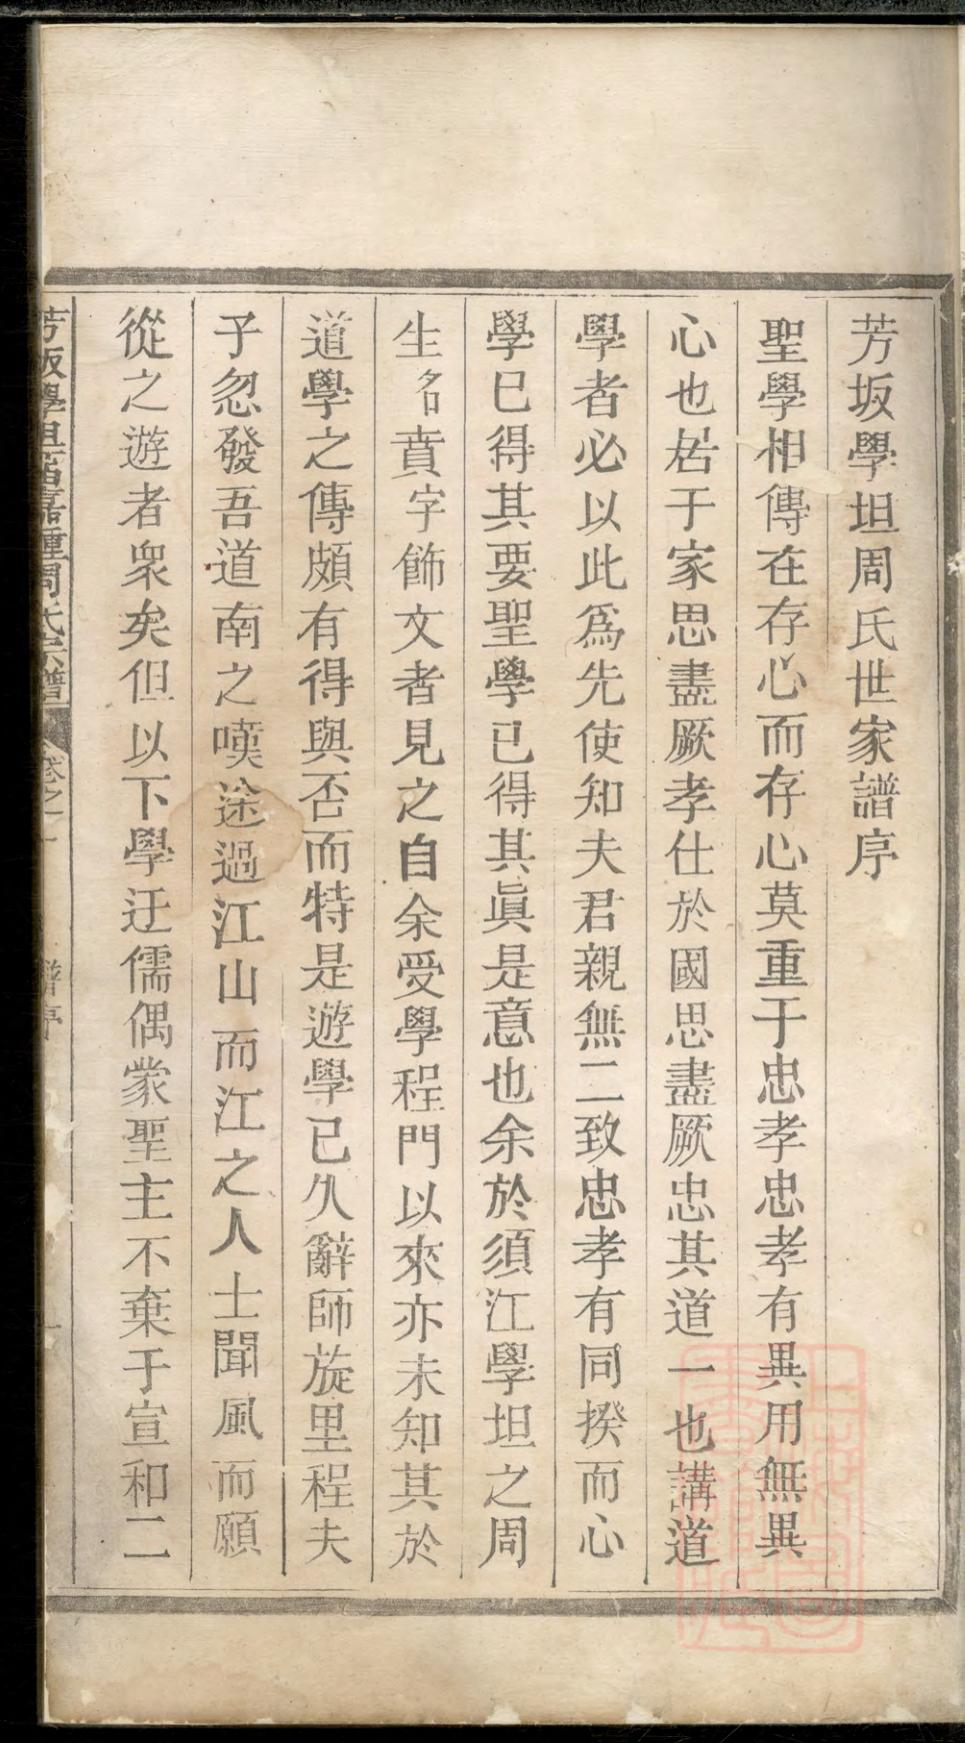 芳坂學坦周氏世家譜序
聖學相傳在存心而存心莫重于忠孝忠孝有異用無異
心也居于家思盡厥孝仕於國思盡厥忠其道一也講道
學者必以此爲先使知夫君親無二致忠孝有同揆而心
學已得其要聖學已得其眞是意也余於須江學坦之周
生名賁字飾文者見之自余受學程門以來亦未知其於
道學之傳頗有得與否而特是遊學已久辭師旋里程夫
子忽發吾道南之嘆途過江山而江之人士聞風而願
從之遊者衆矣但以下學迂儒偶蒙聖主不棄于宣和二
芳坂學坦 嘉湩周氏宗譜 卷之一 譜序 一